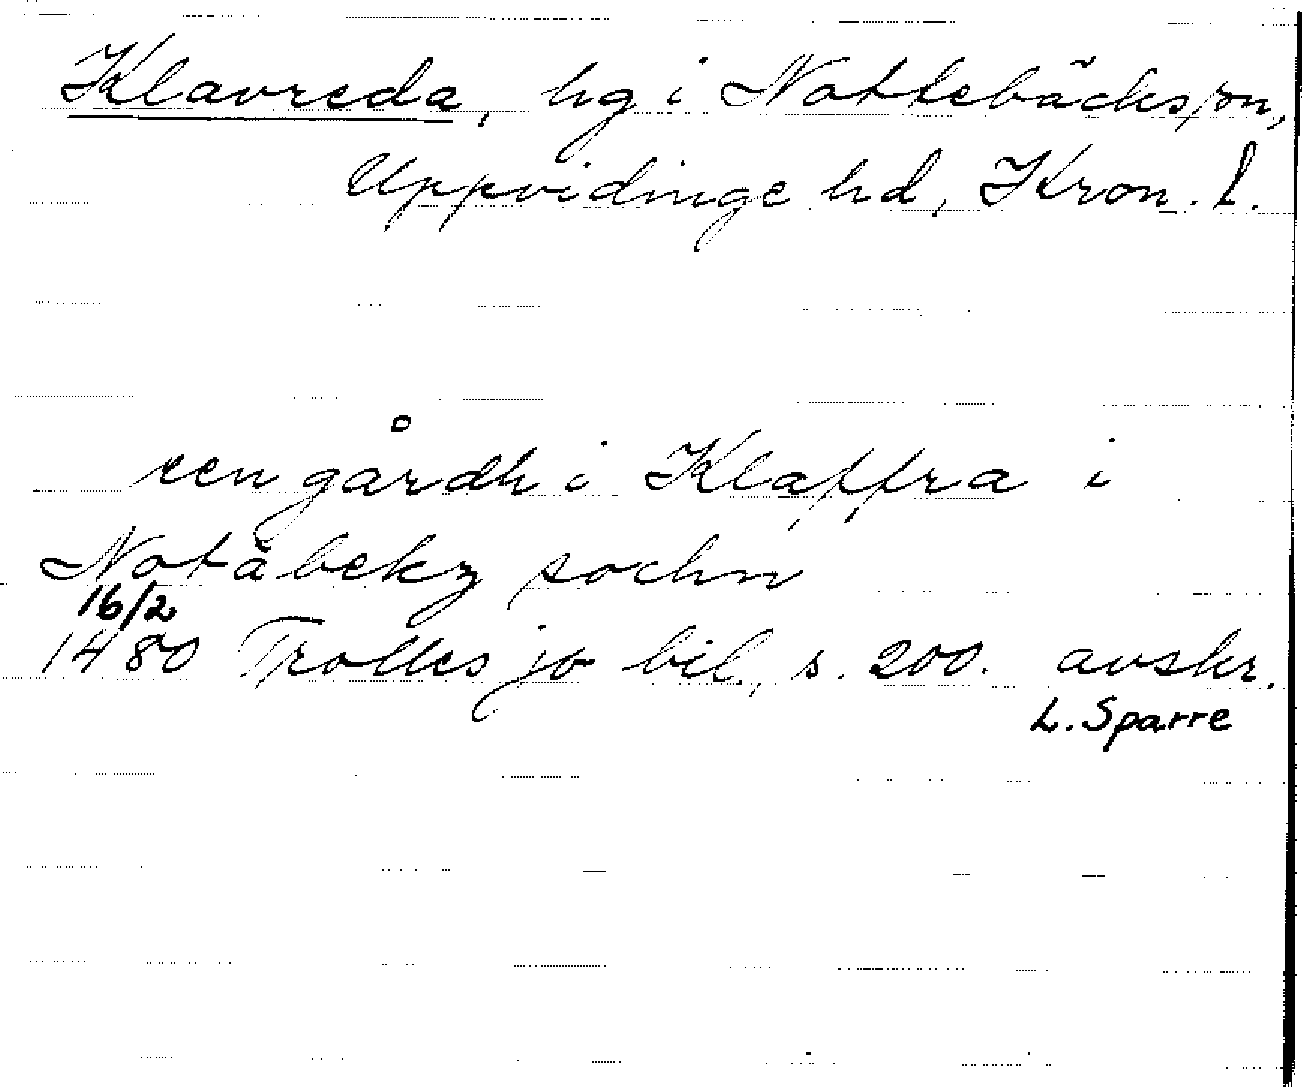 Klavreda, hg i Nottebäcks sn,
Uppvidinge hd, Kron. l.
een gårdh i Klaffra i
Notåbekz sochn
16/2
1480 Trolles jb bil., s. 200. avskr.
L. Sparre